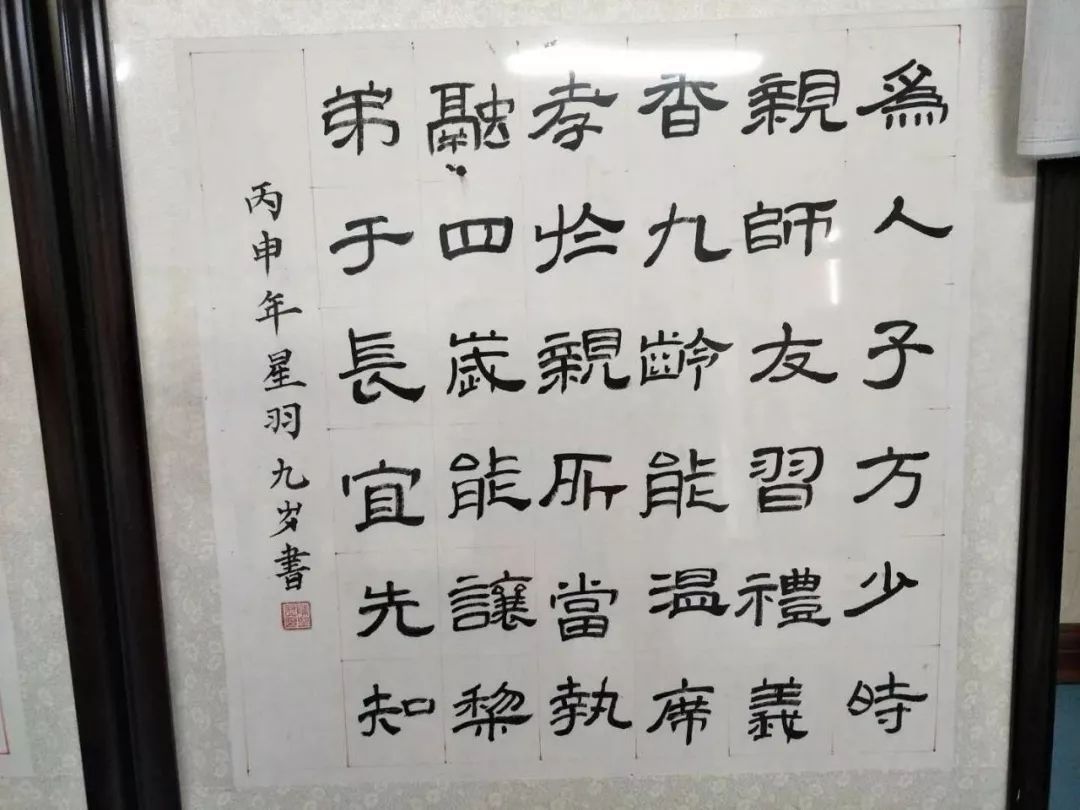 為人子方少時
親師友習禮義
香九齡能温席
孝於親所當執
融四歲能讓梨
弟于長宜先知
丙申年星羽九岁書